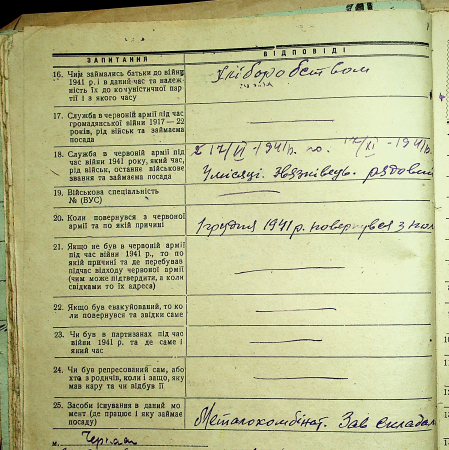 ЗАПИТАННЯ ВІДПОВІДІ
16. Чим займались батьки до війни
1941 р. і в даний час та належ-
ність їх до комуністичної пар-
тії і з якого часу
Хліборобством
17. Служба в червоній армії під час
громадянської війни 1917—22
років, рід військ та займаєма
посада
18. Служба в червоній армії під
час війни 1941 року, який час,
рід військ, останнє військове
звання та займаєма посада
з 17/VI-1941р. по 17/XI-1941р.
4 місяці. Звязківець. рядовий
19. Військова спеціальність
№ (ВУС)
20. Коли повернувся з червоної
армії та по якій причині
1 грудня 1941 р. повернувся з пол
21. Якщо не був в червоній армії
під час війни 1941 р., то по
якій причині та де перебував
підчас відходу червоної армії
(чим може підтвердити, а коли
свідками то їх адреса)
22. Якщо був евакуйований, то ко-
ли повернувся та звідки саме
23. Чи був в партизанах під час
війни 1941 р. та де саме і
який час
24. Чи був репресований сам, або
хто з родичів, коли і защо, яку
мав кару та чи відбув її
25. Засоби існування в даний мо-
мент (де працює і яку займає
посаду)
Металокомбінат. Зав складом
м.